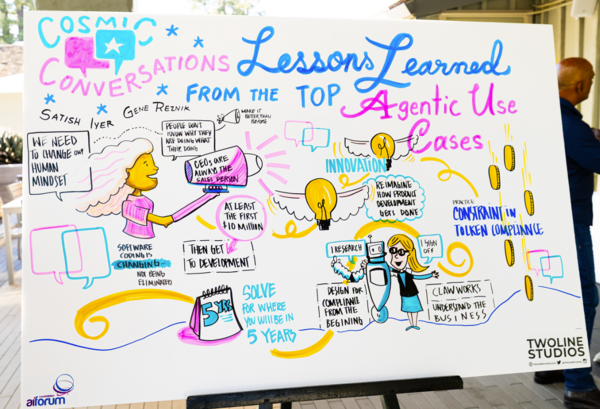 COSMIC
CONVERSATIONS
Lessons Learned
FROM THE TOP Agentic Use
Cases
SATISH IYER GENE REZNIK
MAKE IT
BETTER THAN
WE NEED
TO CHANGE OUR
HUMAN
MINDSET
PEOPLE DON'T
KNOW WHY THEY
ARE DOING WHAT
THEIR DOING
CEOs ARE
ALWAYS THE
SALES PERSON
AT LEAST
THE FIRST
$10 MILLION
THEN GET
TO DEVELOPMENT
SOFTWARE
CODING IS
CHANGING -
NOT BEING
ELIMINATED
5 YRS
SOLVE
FOR WHERE
YOU WILL BE IN
5 YEARS
INNOVATION
REIMAGINE
HOW PRODUCT
DEVELOPMENT
GETS DONE
I RESEARCH
I SIGN
OFF
DESIGN FOR
COMPLIANCE
FROM THE
BEGINING
CLAWWORKS
UNDERSTAND THE
BUSINESS
PRACTICE
CONSTRAINT IN
TOLKEN COMPLIANCE
TWOLINE
STUDIOS
aiforum